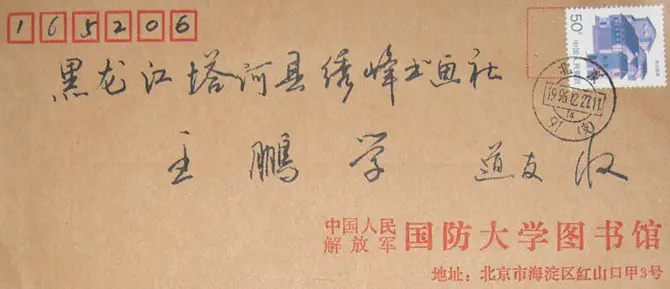 165206
50分
黑龙江塔河县绣峰书画社
北京
1996.12.27.11
91(支)
王鹏学 道友 收
中国人民解放军 国防大学图书馆
地址：北京市海淀区红山口甲3号